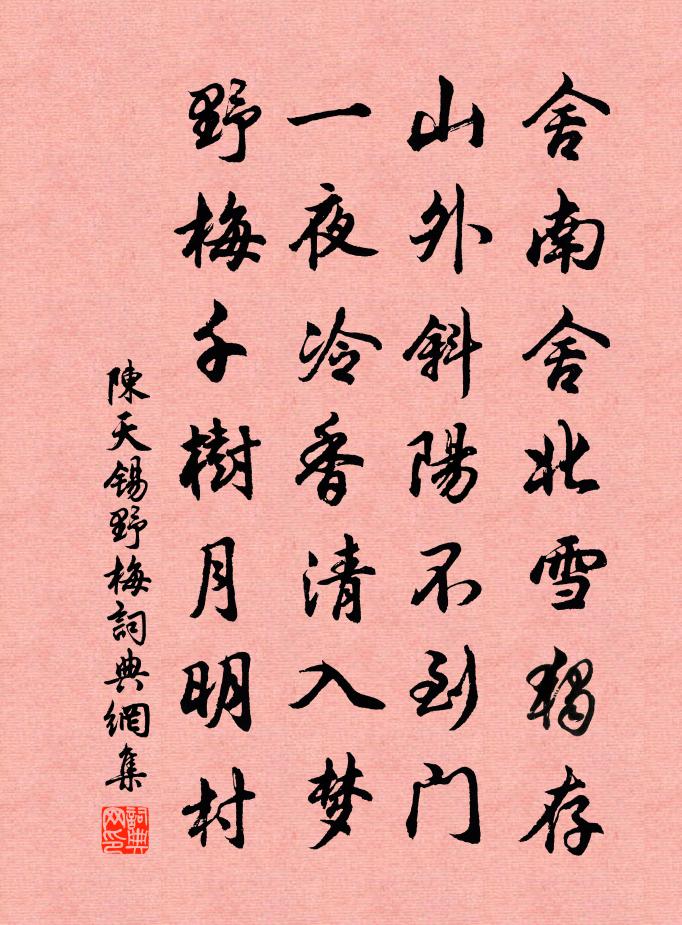 舍南舍北雪獨存
山外斜陽不到門
一夜冷香清入梦
野梅千樹月明村
陳天錫野梅詞典網集
詞典网印